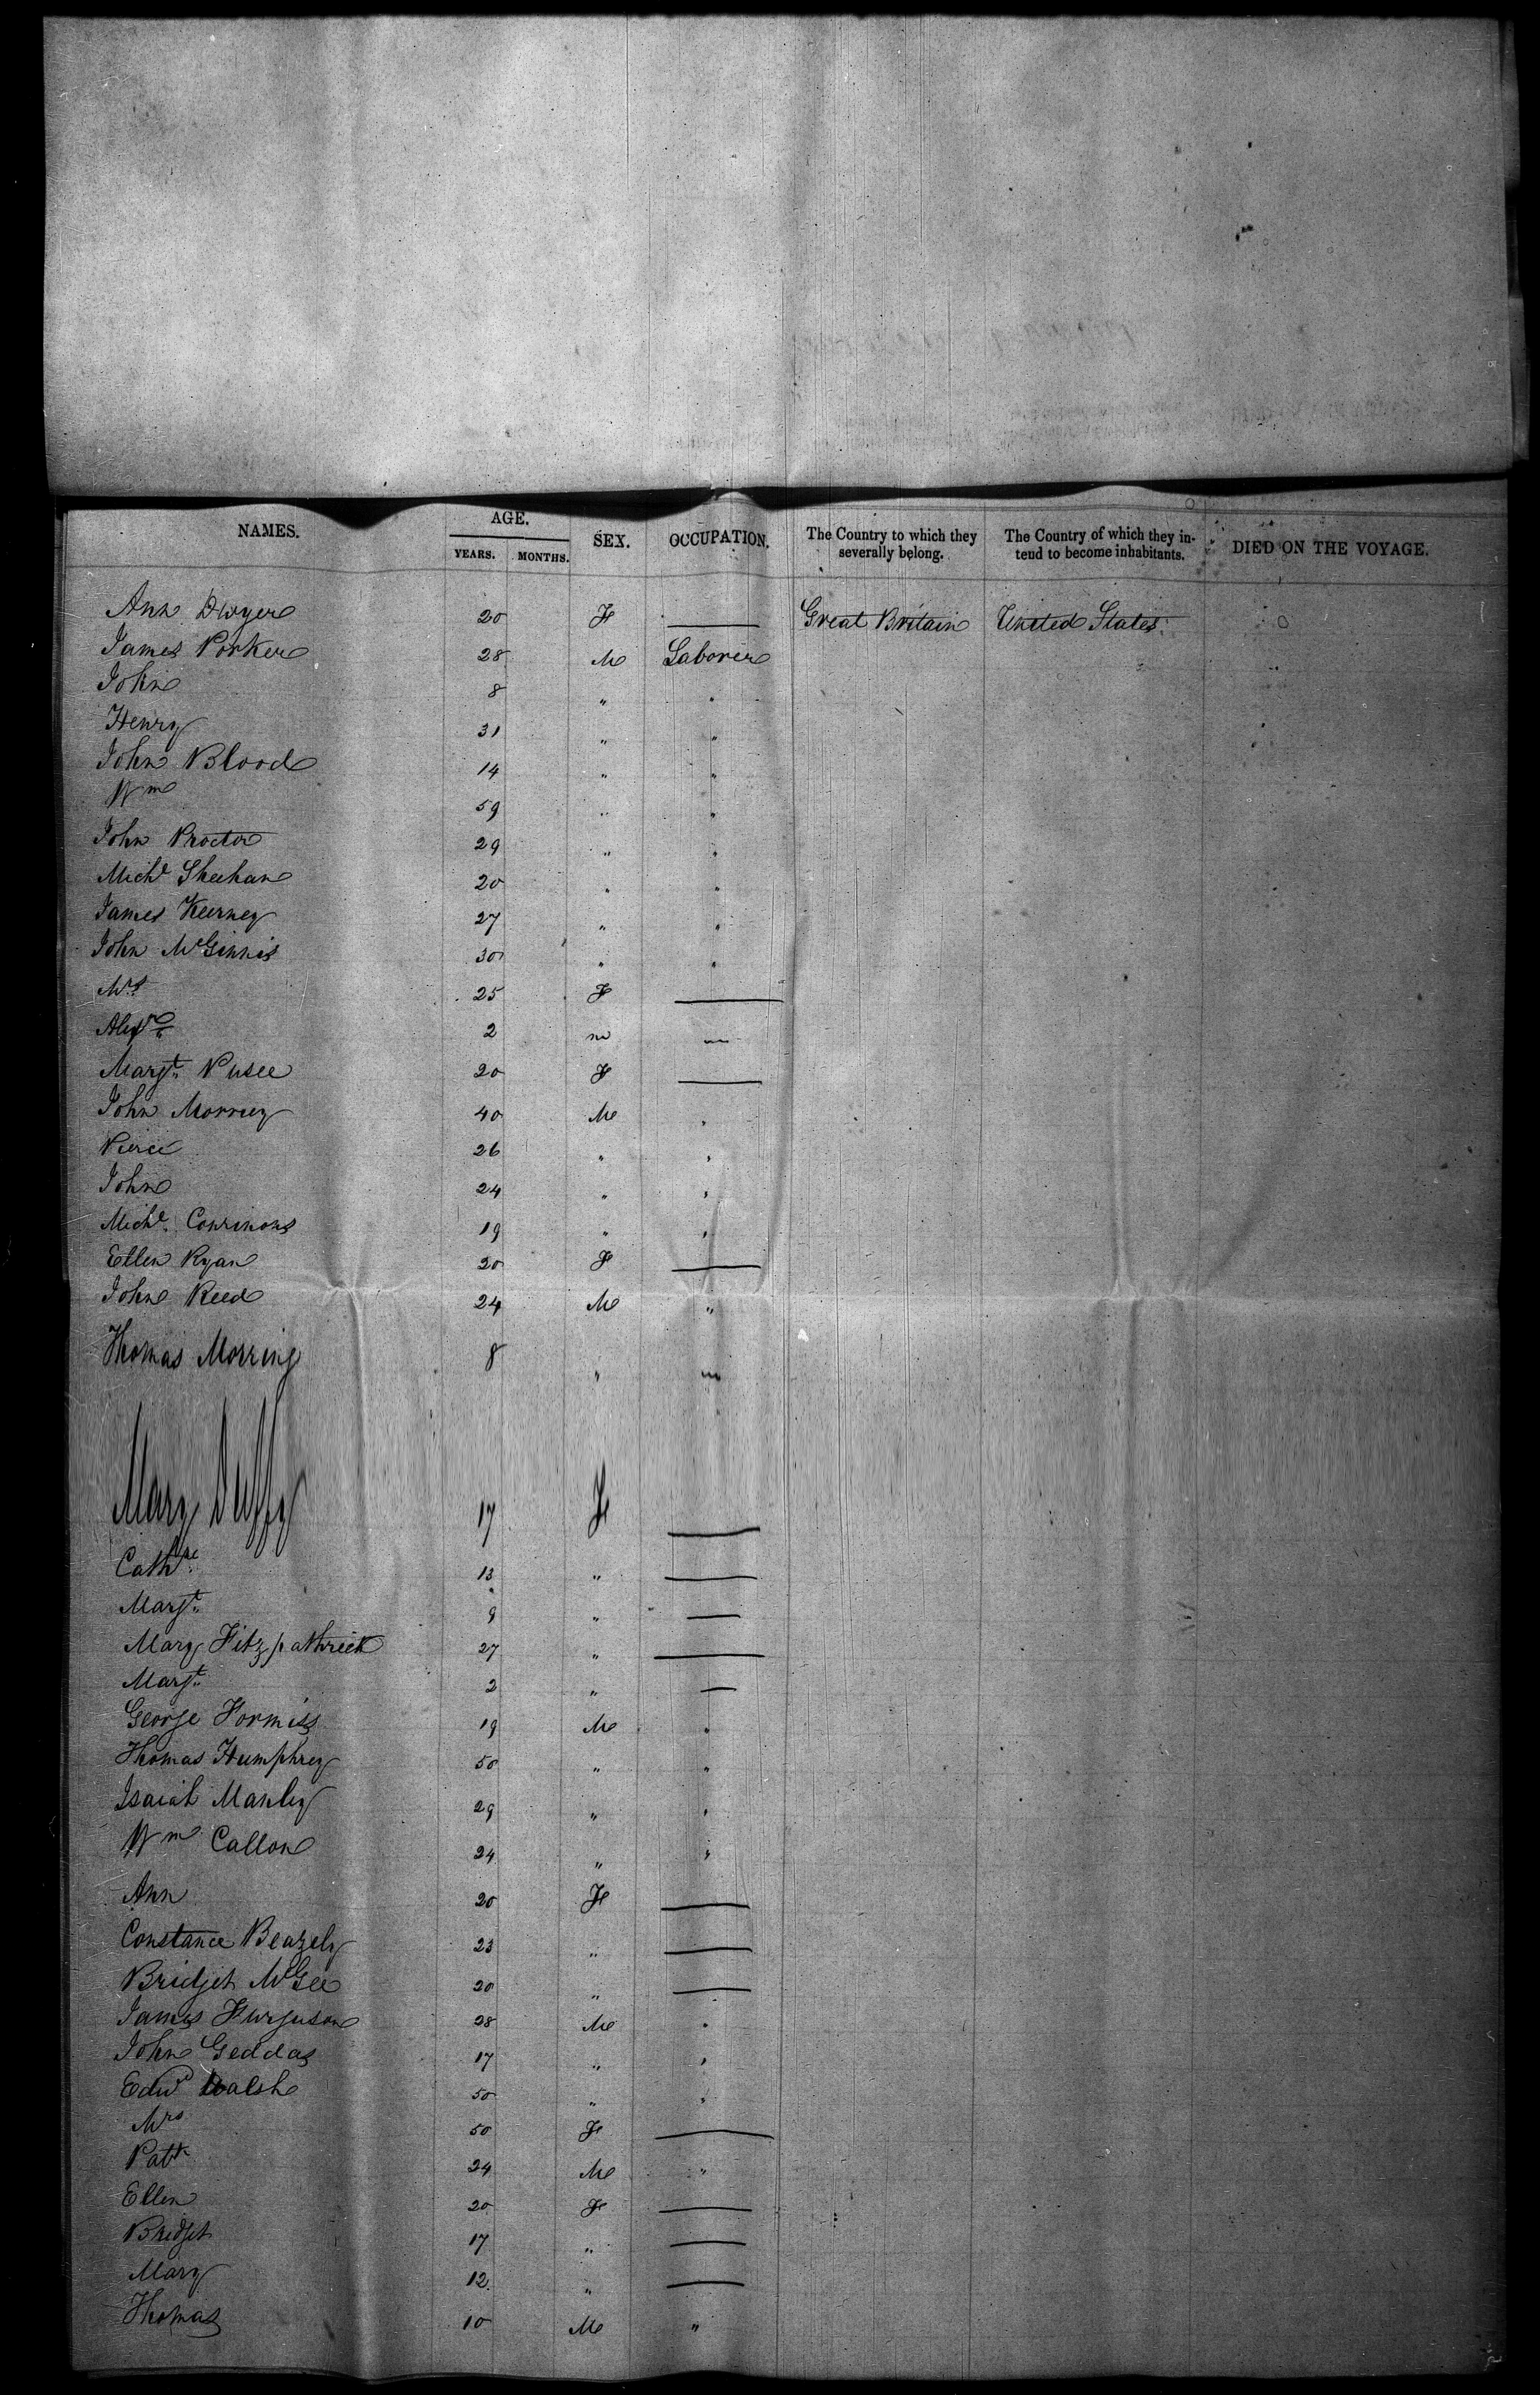 NAMES. AGE. SEX. OCCUPATION. The Country to which they severally belong. The Country of which they intend to become inhabitants. DIED ON THE VOYAGE.
YEARS. MONTHS.
Ann Dwyer 20 F — Great Britain United States
James Porker 28 M Laborer
John 8 " "
Henry 31 " "
John Blood 14 " "
Wm 59 " "
John Proctor 29 " "
Michl Sheehan 20 " "
James Keerney 27 " "
John McGinnis 30 " "
Mrs 25 F —
Alexr 2 m
Margt Pusee 20 F —
John Morrey 40 M "
Pierce 26 " "
John 24 " "
Michl 19 " "
Ellen Ryan 20 F —
John Reed 24 M "
Thomas Morring 8 "
Mary Duffy 17 F —
Cathne 13 " —
Margt 9 " —
Mary Fitzpathrick 27 " —
Margt 2 " —
George Formiss 19 M "
Thomas Humphrey 50 " "
Isaiah Manley 29 " "
Wm Callon 24 " "
Ann 20 F —
Constance Beazely 23 " —
Bridget McGee 20 " —
James Furguson 28 M "
John Geddas 17 " "
Edwd Walsh 50 " "
Mrs 50 F —
Patk 24 M "
Ellen 20 F —
Bridget 17 " —
Mary 12 " —
Thomas 10 M "